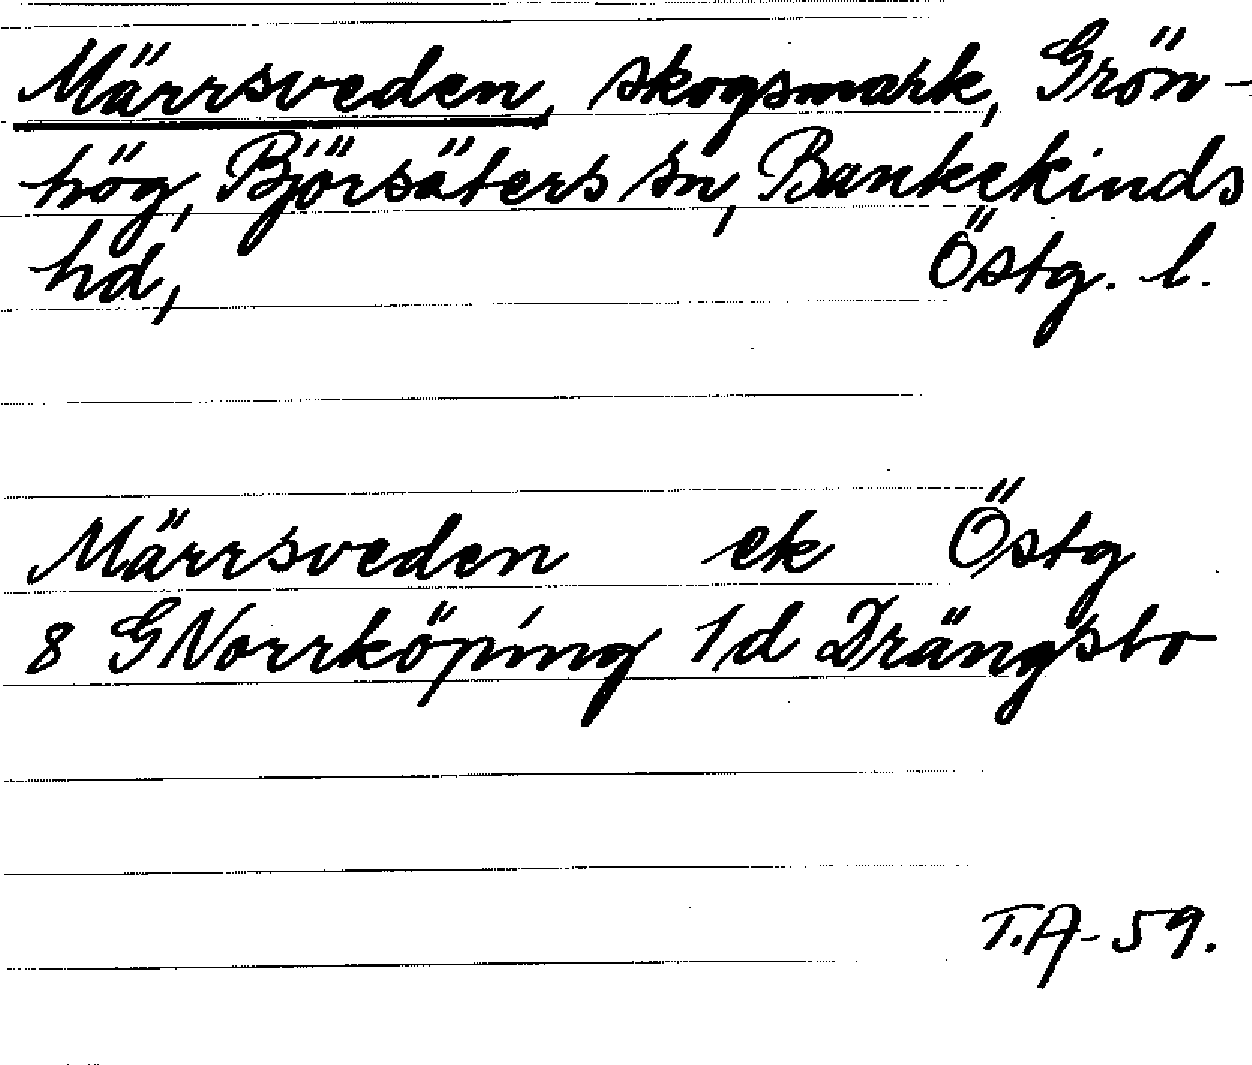 Märrsveden, skogsmark, Grön-
hög, Björsäters sn, Bankekinds
hd, Östg. l.
Märrsveden ek Östg
8 G Norrköping 1d Drängsbo
T.A-59.